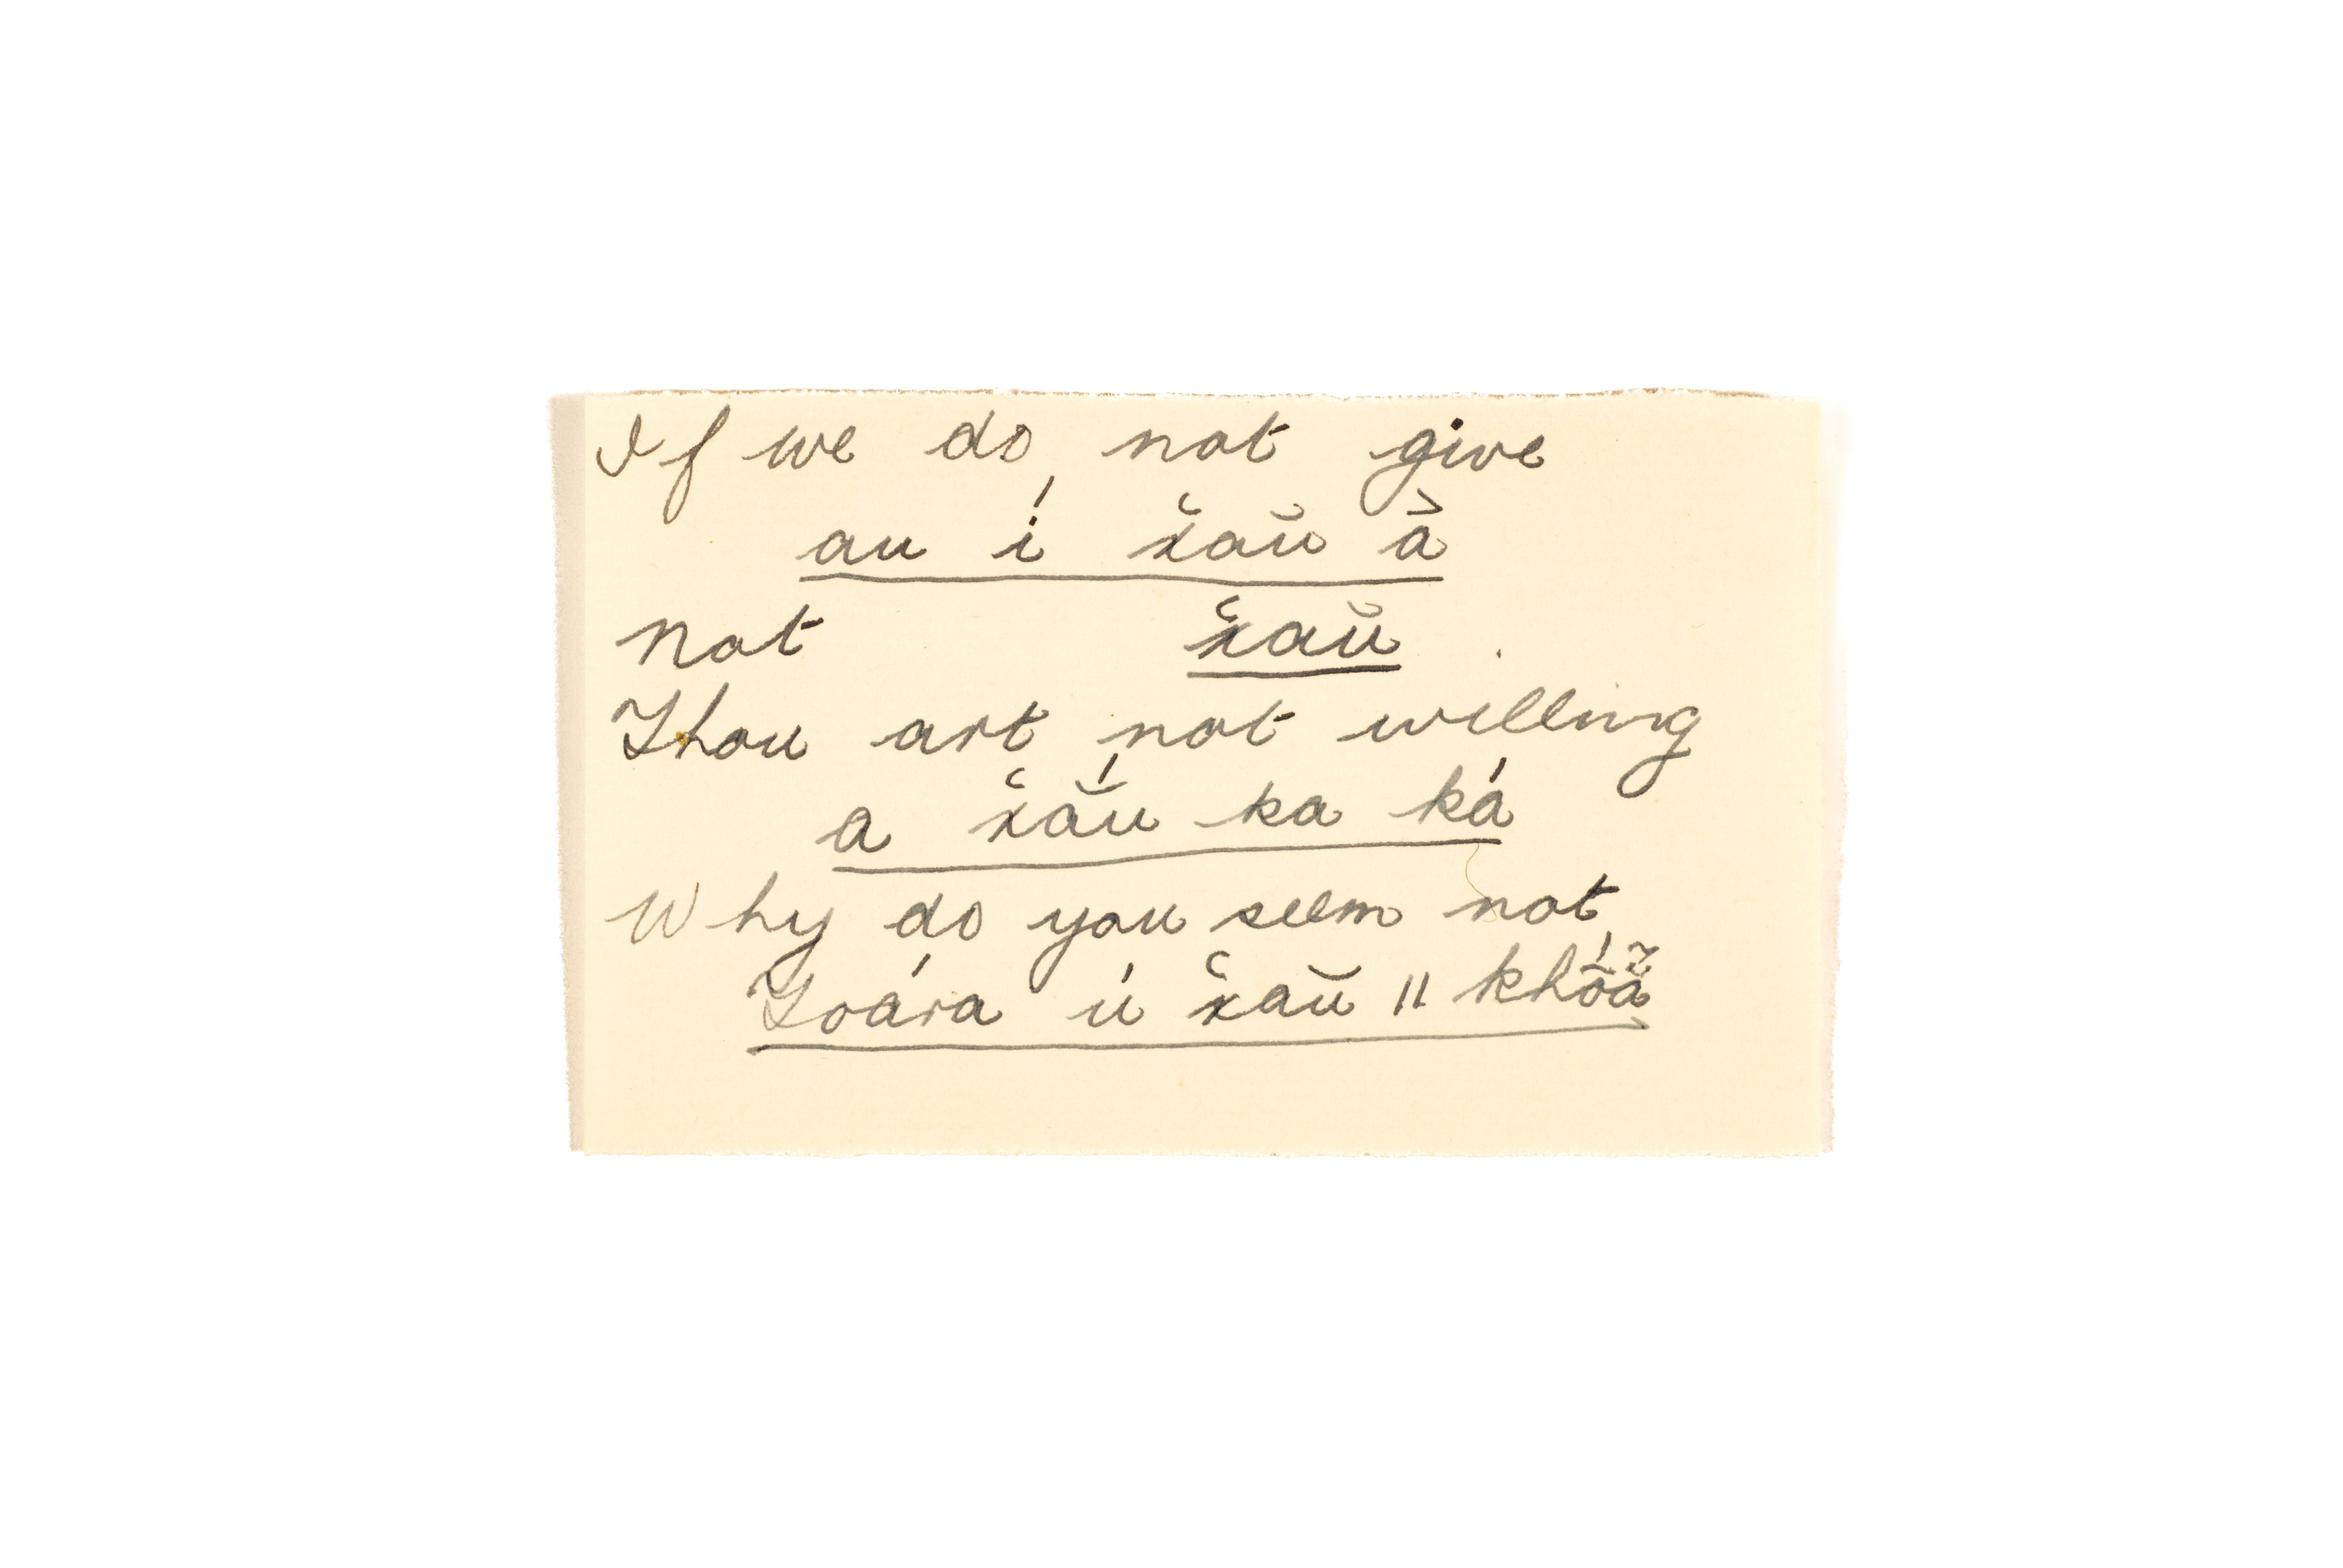 If we do not give
au í x̆aŭ à
Not x̆aŭ
Thou art not willing
a x̆ắu ka ká
Why do you seem not
Toára ú x̆aŭ ǁ khóä̃